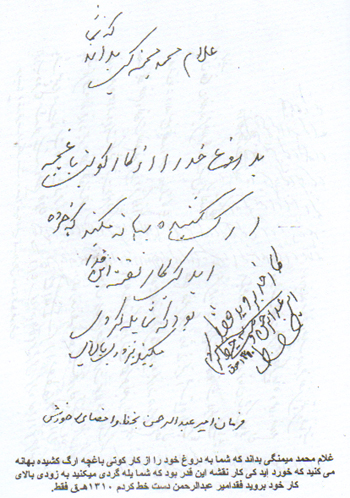 که شما
غلام محمد میمنگی بداند
بدروغ خود را از کار کوتی باغچه
ارگ کشیده بهانه میکنید که خورده
اید کی کار نقشه این قدر
بود که شما پله گردی
میکنید بزودی بالای
کار خود بروید فقط
امیر عبدالرحمن
فرمان امیر عبدالرحمن بخط و امضای خودش
غلام محمد میمنگی بداند که شما به دروغ خود را از کار کوتی باغچه ارگ کشیده بهانه
می کنید که خورد اید کی کار نقشه این قدر بود که شما پله گردی میکنید به زودی بالای
کار خود بروید فقدامیر عبدالرحمن دست خط کردم ۱۳۱۰هـق فقط.